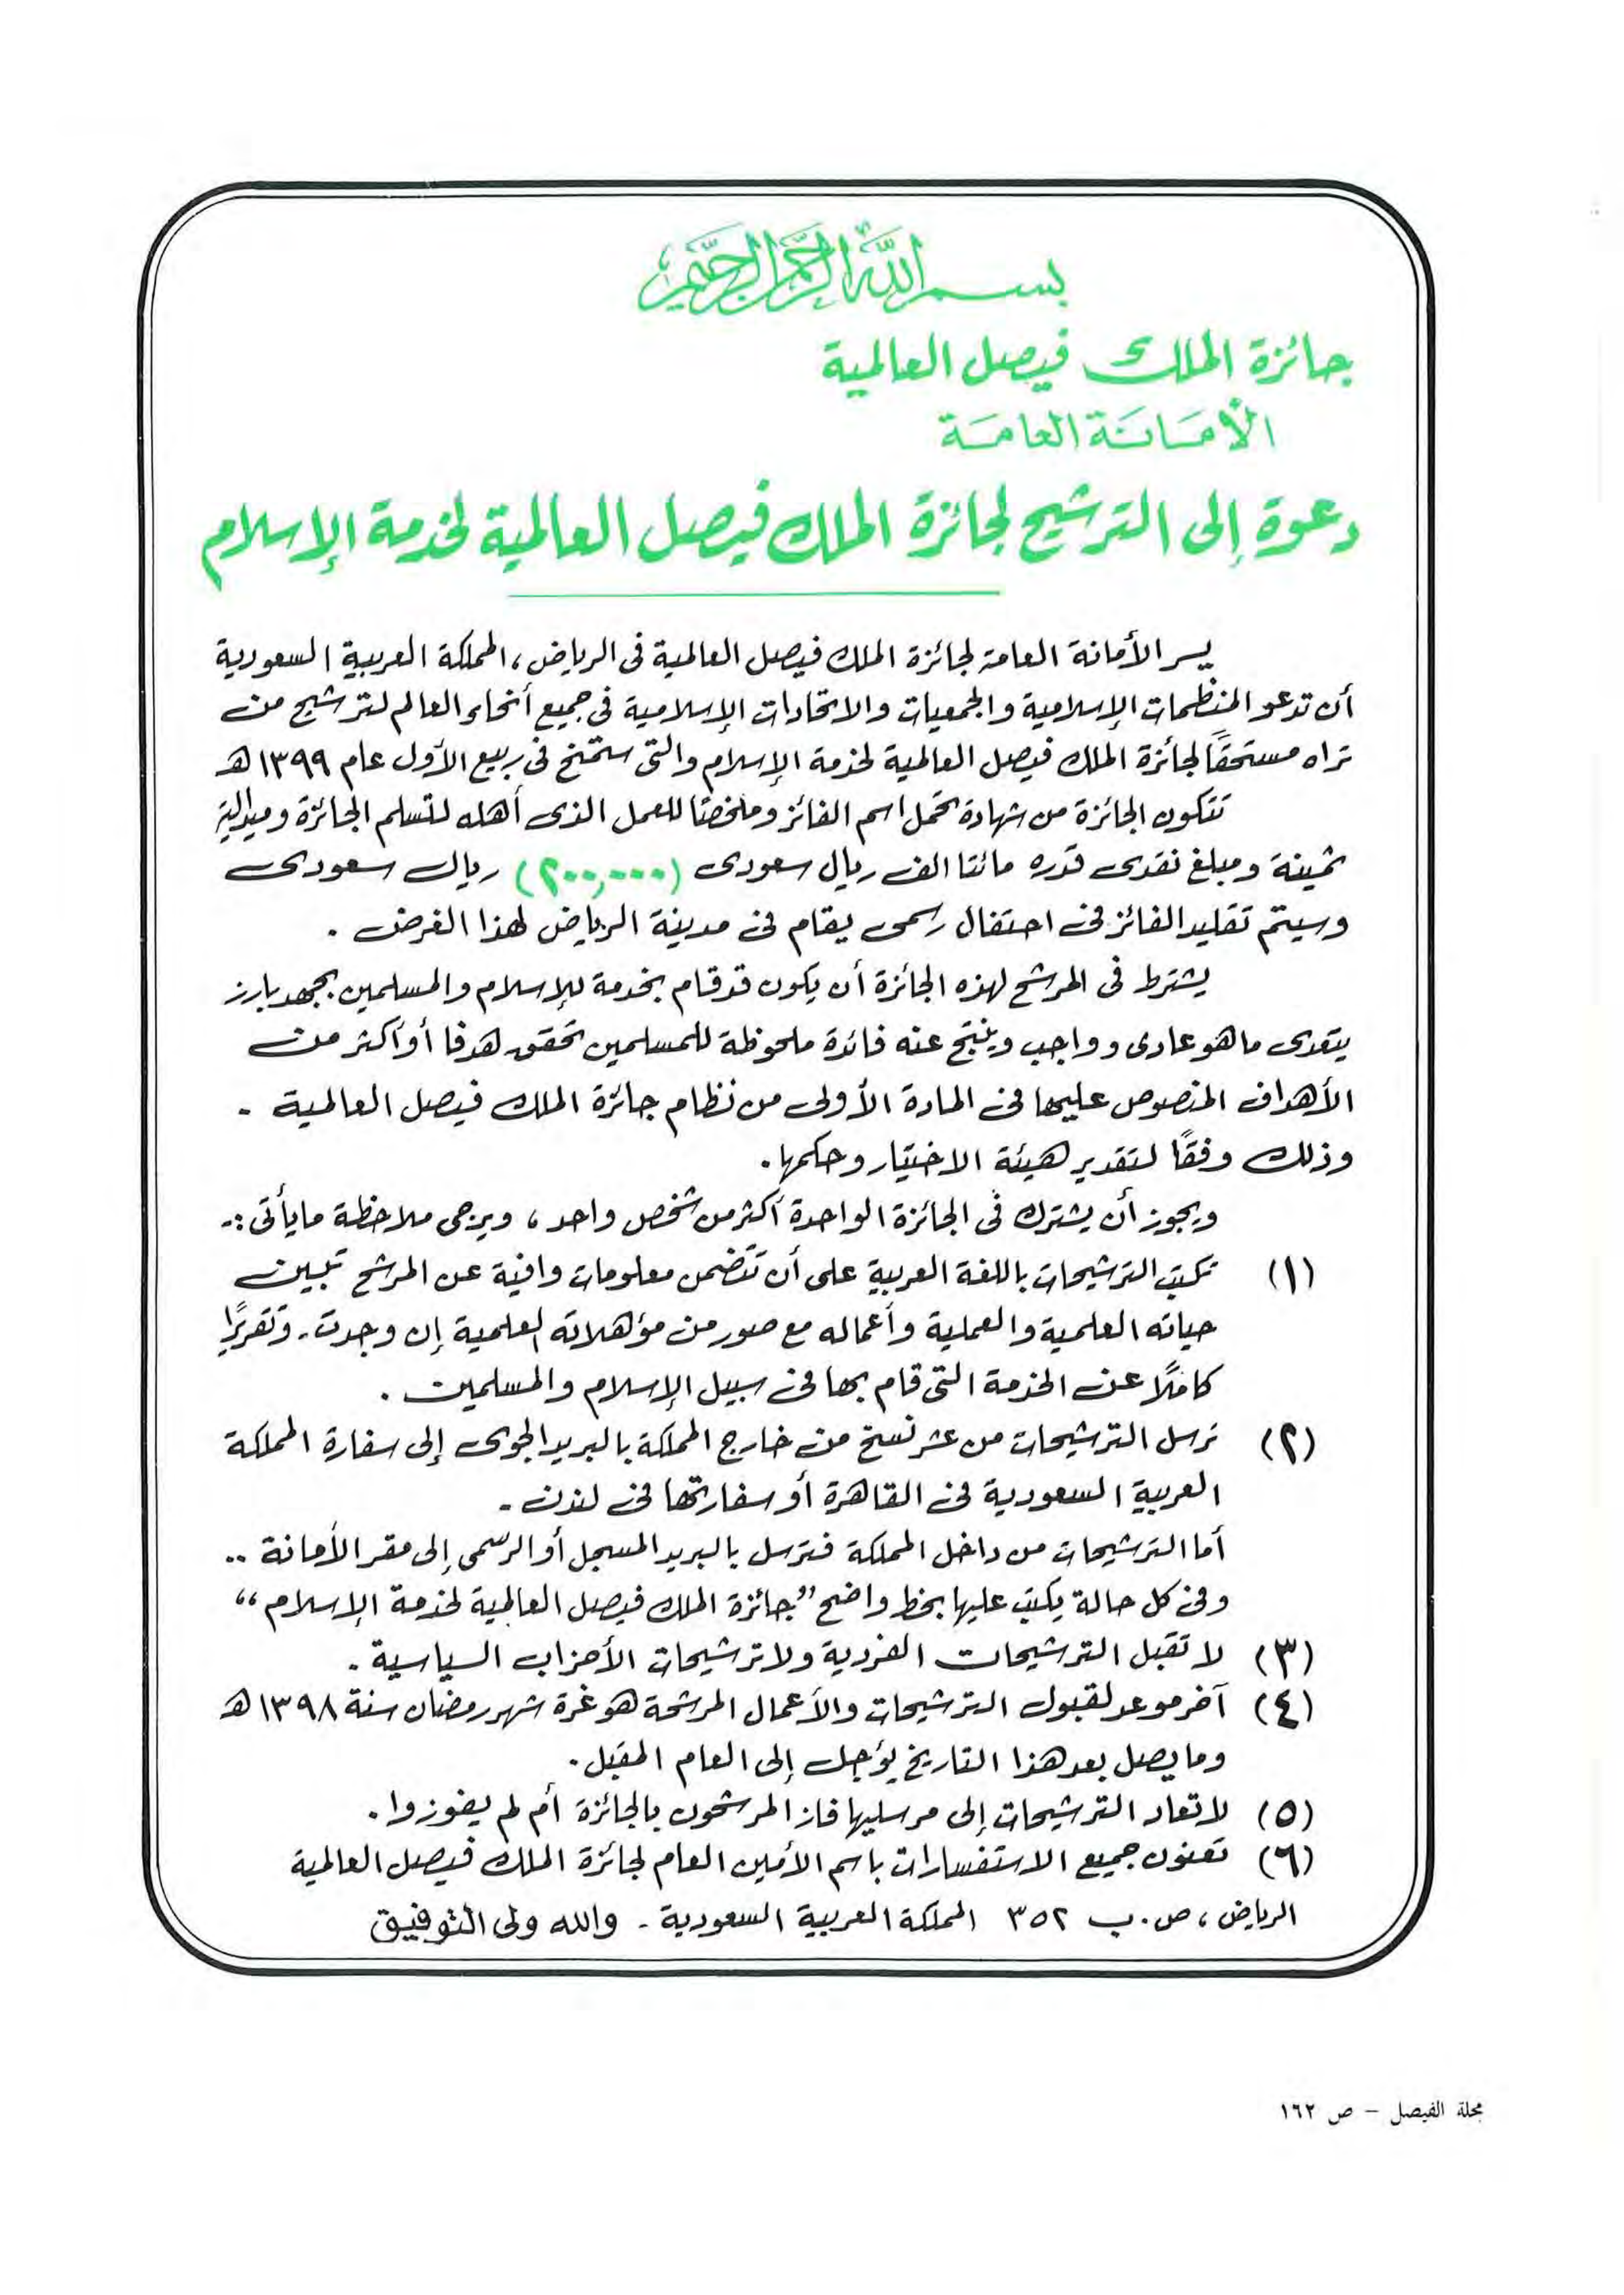 بسم الله الرحمن الرحيم
جائزة الملك فيصل العالمية
الأمَانَة العَامَة
دعوة إلى الترشيح لجائزة الملك فيصل العالمية لخدمة الإسلام
يسر الأمانة العامة لجائزة الملك فيصل العالمية فى الرياض، المملكة العربية السعودية
أن تدعو المنظمات الإسلامية والجمعيات والاتحادات الإسلامية فى جميع أنحاء العالم لترشيح من
تراه مستحقًا لجائزة الملك فيصل العالمية لخدمة الإسلام والتى ستمنح فى ربيع الأول عام ١٣٩٩ هـ
تتكون الجائزة من شهادة تحمل اسم الفائز وملخصًا للعمل الذى أهله لتسلم الجائزة وميدالية
ثمينة ومبلغ نقدى قدره مائتا الف ريال سعودى (٢٠٠,٠٠٠) ريال سعودى
وسيتم تقليد الفائز فى احتفال رسمى يقام فى مدينة الرياض لهذا الغرض .
يشترط فى المرشح لهذه الجائزة أن يكون قد قام بخدمة للإسلام والمسلمين بجهد بارز
يتعدى ما هو عادى وواجب وينتج عنه فائدة ملحوظة للمسلمين تحقق هدفا أو أكثر من
الأهداف المنصوص عليها فى المادة الأولى من نظام جائزة الملك فيصل العالمية -
وذلك وفقًا لتقدير هيئة الاختيار وحكمها.
ويجوز أن يشترك فى الجائزة الواحدة أكثر من شخص واحد، ويرجى ملاحظة مايأتى :-
(١) تكتب الترشيحات باللغة العربية على أن تتضمن معلومات وافية عن المرشح تبين
حياته العلمية والعملية وأعماله مع صور من مؤهلاته العلمية إن وجدت - وتقريرًا
كاملًا عن الخدمة التى قام بها فى سبيل الإسلام والمسلمين .
(٢) ترسل الترشيحات من عشر نسخ من خارج المملكة بالبريد الجوى إلى سفارة المملكة
العربية السعودية فى القاهرة أو سفارتها فى لندن -
أما الترشيحات من داخل المملكة فترسل بالبريد المسجل أو الرسمى إلى مقر الأمانة ..
وفى كل حالة يكتب عليها بخط واضح "جائزة الملك فيصل العالمية لخدمة الإسلام"
(٣) لا تقبل الترشيحات الفردية ولا ترشيحات الأحزاب السياسية -
(٤) آخر موعد لقبول الترشيحات والأعمال المرشحة هو غرة شهر رمضان سنة ١٣٩٨ هـ
وما يصل بعد هذا التاريخ يؤجل إلى العام المقبل .
(٥) لا تعاد الترشيحات إلى مرسليها فاز المرشحون بالجائزة أم لم يفوزوا .
(٦) تعنون جميع الاستفسارات باسم الأمين العام لجائزة الملك فيصل العالمية
الرياض، ص. ب ٣٥٢ المملكة العربية السعودية - والله ولى التوفيق
مجلة الفيصل – ص ١٦٢